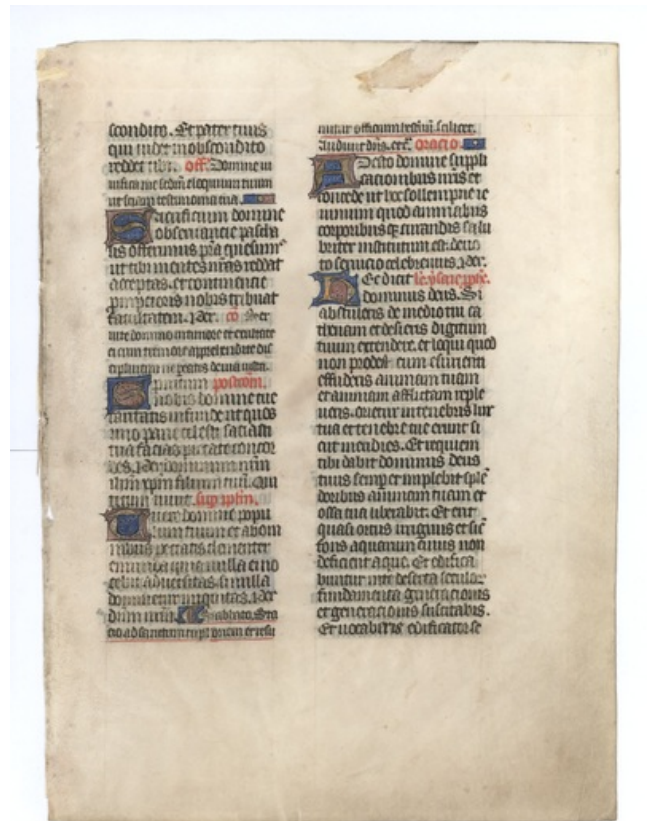 scondito. Et pater tuus
qui uidet in abscondito
reddet tibi. off. Domine ui
uifica me secdm eloquium tuum
ut sciam testimonia tua.
Sacrificium domine
obseruantie pascha
lis offerimus pra quesum
ut tibi mentes nras reddat
acceptas. et continencie
promptioris nobis tribuat
facultatem. Per. co Ser
uite domino in timore et exultate
ei cum tremore apprehendite dis
ciplinam ne pereatis de uia iusta.
Spiritum postcom.
nobis domine tue
caritatis infunde ut quos
uno pane celesti saciasti
tua facias pietate concor
des. Per dominum nrm
ihm xpm filium tuu. Qui
tecum uiuit. sup ipsm.
Tuere domine popu
lum tuum et ab om
nibus peccatis clementer
emunda quia nulla ei no
cebit aduersitas si nulla
dominetur iniquitas. Per
dnm nrm. Sabbato. Sta
cio ad sanctum
mitur officium scilicet.
Audiuit dns. etc. oracio
Adesto domine suppli
cacionibus nris et
concede ut hoc sollempne ie
iunium quod animabus
corporibusq curandis salu
briter institutum est. deuo
to seruicio celebremus. Per.
Hec dicit le. ysaie pphe.
dominus deus. Si
abstuleris de medio tui ca
thenam et desieris digitum
tuum extendere. et loqui quod
non prodest cum esurienti
effuderis animam tuam
et animam afflictam reple
ueris. orietur in tenebris lux
tua et tenebre tue erunt si
cut meridies. Et requiem
tibi dabit dominus deus
tuus semp et implebit sple
doribus animam tuam et
ossa tua liberabit. Et erit
quasi ortus irriguus et sic
fons aquarum cuius non
deficient aque. Et edifica
buntur in te deserta seculor
fundamenta generacionis
et generacionis suscitabis.
Et uocaberis edificator se